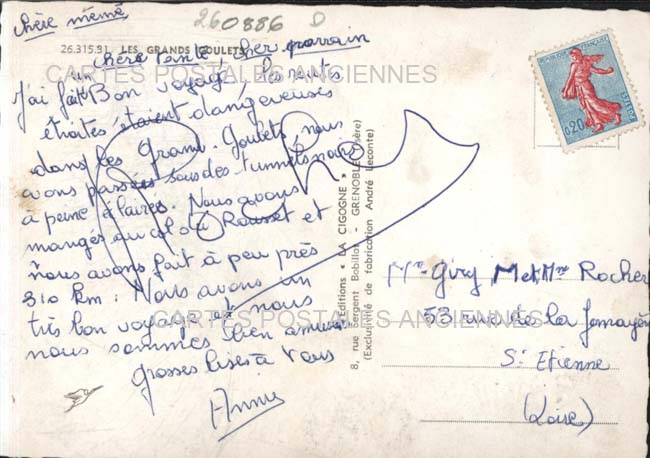 chère mémé
260886 D
26.315.91 LES GRANDS GOULETS
chère tante cher parrain
CARTES POSTALES ANCIENNES
J'ai fait un Bon voyage, les routes
étroites étaient dangereuses
dans les Grand. Goulets, nous
avons passées sous des tunnels noirs
à peine éclairés. Nous avons
mangés au col du Rousset et
nous avons fait à peu près
310 km. Nous avons un
très bon voyage et nous
nous sommes bien amusés
Grosses bises à Vous
Annie
Editions « LA CIGOGNE »
8, rue Sergent Bobillot - GRENOBLE (Isère)
(Exclusivité de fabrication André Leconte)
REPUBLIQUE FRANÇAISE
0,20
POSTES
Mr Giry Met Mme Rocher
53 rue de la
CARTES POSTALES ANCIENNES
St Etienne
(Loire)